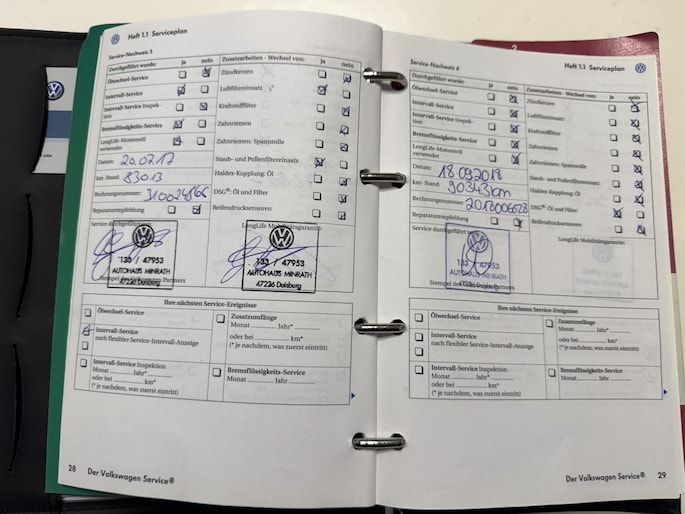 Heft 1.1 Serviceplan
Service-Nachweis 5
Durchgeführt wurde: ja nein
Ölwechsel-Service
Intervall-Service
Intervall-Service Inspektion
Bremsflüssigkeits-Service
LongLife-Motorenöl verwendet
Datum: 20.02.17
km-Stand: 83013
Rechnungsnummer: 3100248166
Reparaturempfehlung
Service durchgeführt:
Zusatzarbeiten - Wechsel von: ja nein
Zündkerzen
Luftfiltereinsatz
Kraftstofffilter
Zahnriemen
Zahnriemen: Spannrolle
Staub- und Pollenfiltereinsatz
Haldex-Kupplung: Öl
DSG®: Öl und Filter
Reifendrucksensoren
LongLife Mobilitätsgarantie
133 / 47953
AUTOHAUS MINRATH
47226 Duisburg
133 / 47953
AUTOHAUS MINRATH
47226 Duisburg
Stempel des Partners
Ihre nächsten Service-Ereignisse
Ölwechsel-Service
Intervall-Service
nach flexibler Service-Intervall-Anzeige
Intervall-Service Inspektion
Monat Jahr*
oder bei km*
(* je nachdem, was zuerst eintritt)
Zusatzumfänge
Monat Jahr*
oder bei km*
(* je nachdem, was zuerst eintritt)
Bremsflüssigkeits-Service
Monat Jahr
28 Der Volkswagen Service®
Service-Nachweis 6
Heft 1.1 Serviceplan
Durchgeführt wurde: ja nein
Ölwechsel-Service
Intervall-Service
Intervall-Service Inspektion
Bremsflüssigkeits-Service
LongLife-Motorenöl verwendet
Datum: 18.09.2018
km-Stand: 90343km
Rechnungsnummer: 2018006628
Reparaturempfehlung
Service durchgeführt:
Zusatzarbeiten - Wechsel von: ja nein
Zündkerzen
Luftfiltereinsatz
Kraftstofffilter
Zahnriemen
Zahnriemen: Spannrolle
Staub- und Pollenfiltereinsatz
Haldex-Kupplung: Öl
DSG®: Öl und Filter
Reifendrucksensoren
LongLife Mobilitätsgarantie:
133 / 47953
AUTOHAUS MINRATH
47226 Duisburg
Ihre nächsten Service-Ereignisse
Ölwechsel-Service
Intervall-Service
nach flexibler Service-Intervall-Anzeige
Intervall-Service Inspektion
Monat Jahr*
oder bei km*
(* je nachdem, was zuerst eintritt)
Zusatzumfänge
Monat Jahr*
oder bei km*
(* je nachdem, was zuerst eintritt)
Bremsflüssigkeits-Service
Monat Jahr
Der Volkswagen Service® 29